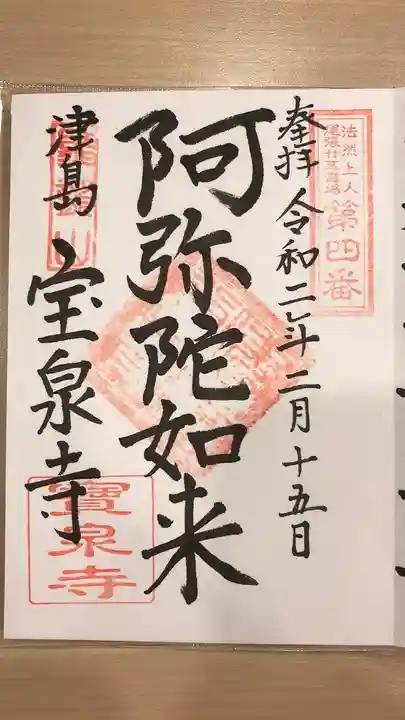 法然上人
尾張廿五霊場
第四番
奉拝
令和二年二月十五日
阿弥陀如来
津島
宝泉寺
寶泉寺